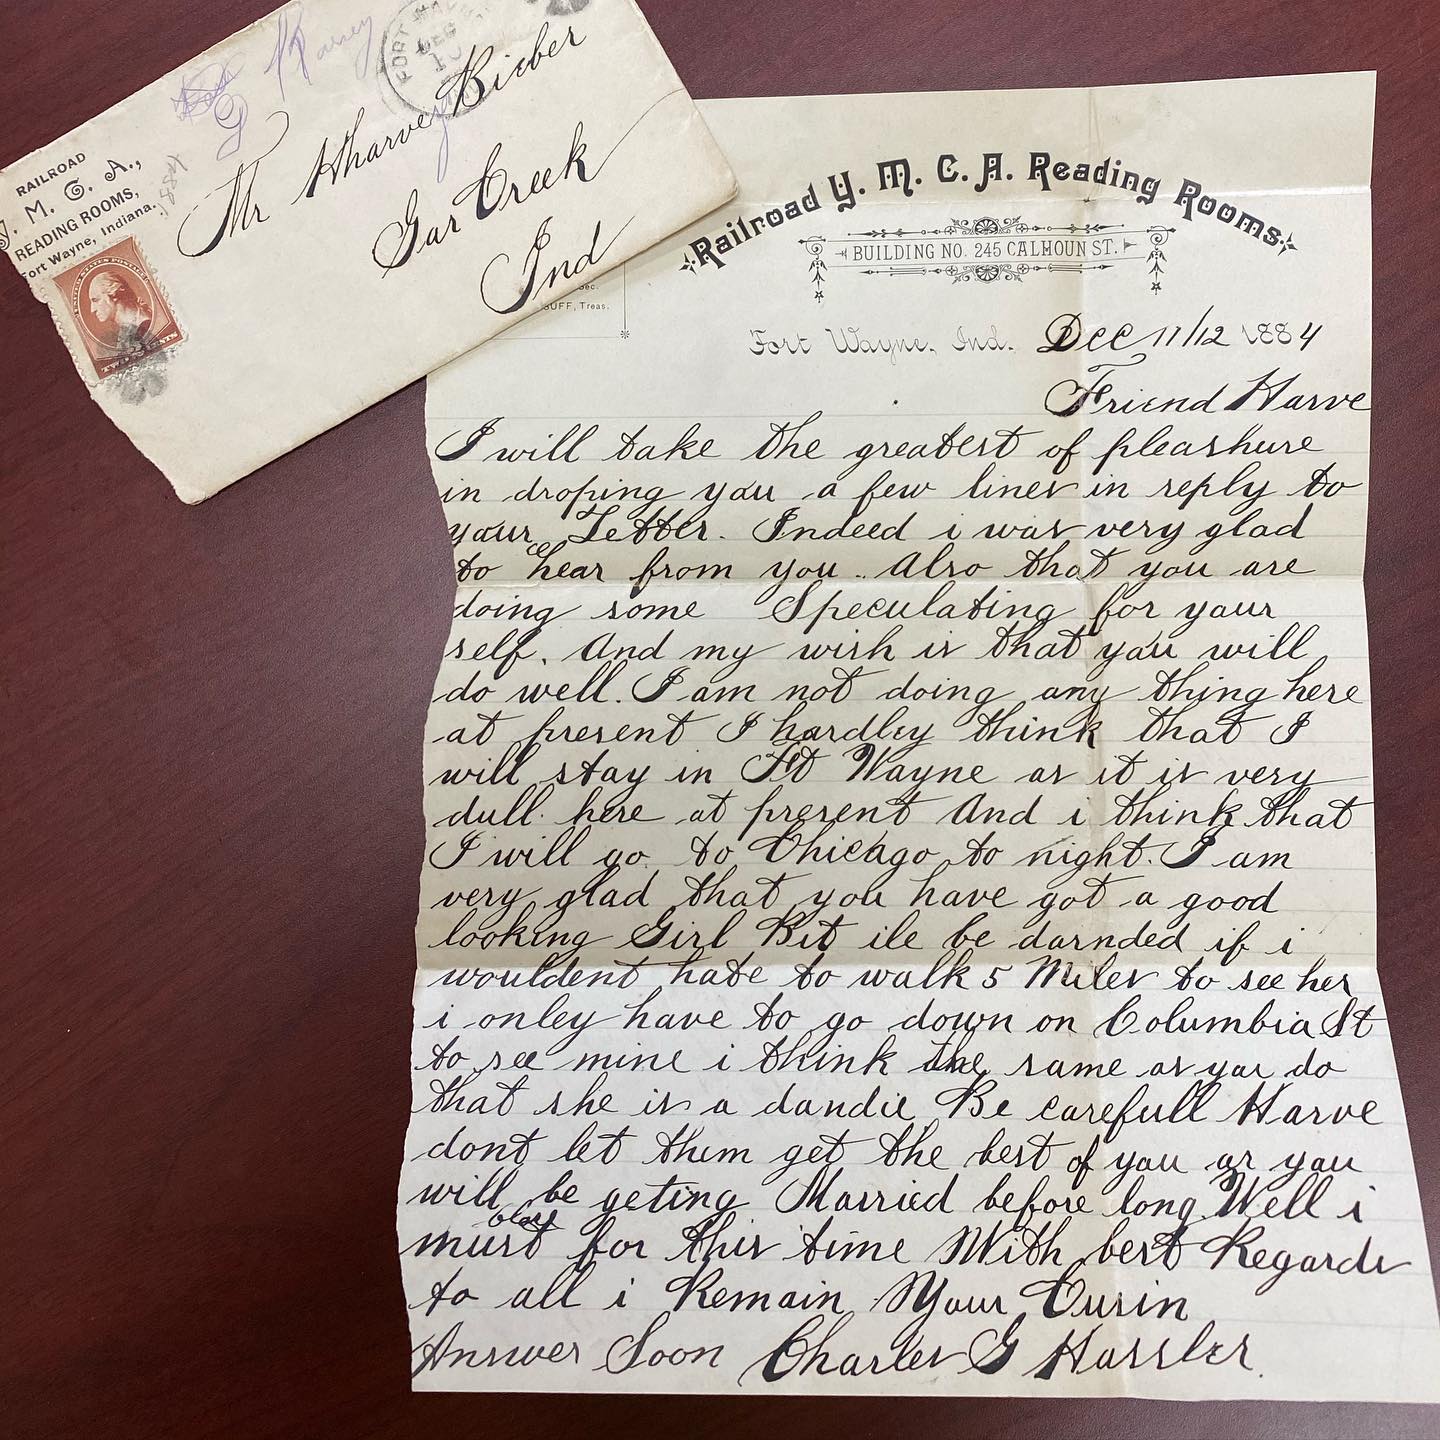 RAILROAD
Y. M. C. A.,
READING ROOMS,
Fort Wayne, Indiana.
UNITED STATES POSTAGE
TWO CENTS
FORT WAYNE
DEC
Harvey
G
Mr Hharvey Bieber
Gar Creek
Ind
Sec.
SUFF, Treas.
Railroad Y. M. C. A. Reading Rooms.
BUILDING NO. 245 CALHOUN ST.
Fort Wayne, Ind. Dec 11/12 1884
Friend Harve
I will take the greatest of pleashure
in droping you a few lines in reply to
your Letter. Indeed i was very glad
to hear from you. Also that you are
doing some Speculating for your
self. And my wish is that you will
do well. I am not doing any thing here
at present I hardley think that I
will stay in Ft Wayne as it is very
dull here at present And i think that
I will go to Chicago to night. I am
very glad that you have got a good
looking Girl But ile be darnded if i
wouldent hate to walk 5 Miles to see her
i onley have to go down on Columbia St
to see mine i think the same as you do
that she is a dandie Be carefull Harve
dont let them get the best of you or you
will be geting Married before long. Well i
must close for this time With best Regards
to all i Remain Your Cusin
Answer Soon Charles G Hassler.